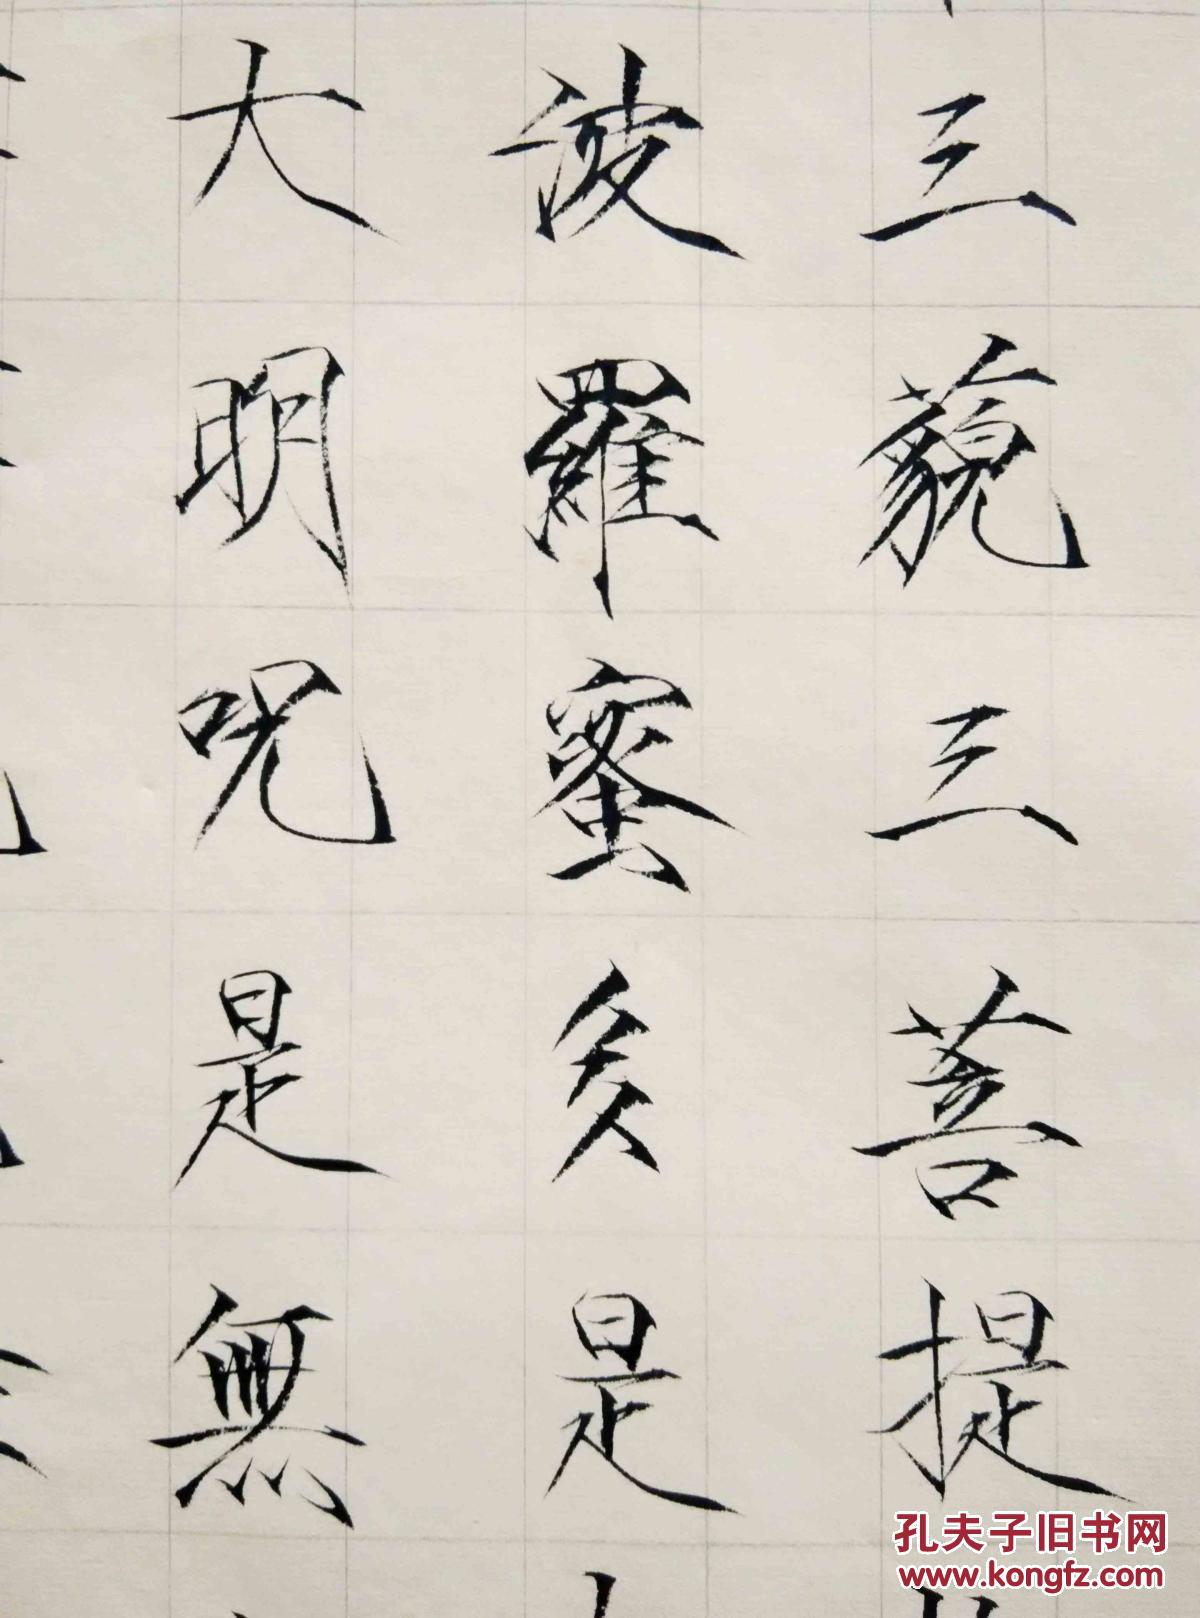 三藐三菩提
波羅蜜多是
大明呪是無
孔夫子旧书网
www.kongfz.com